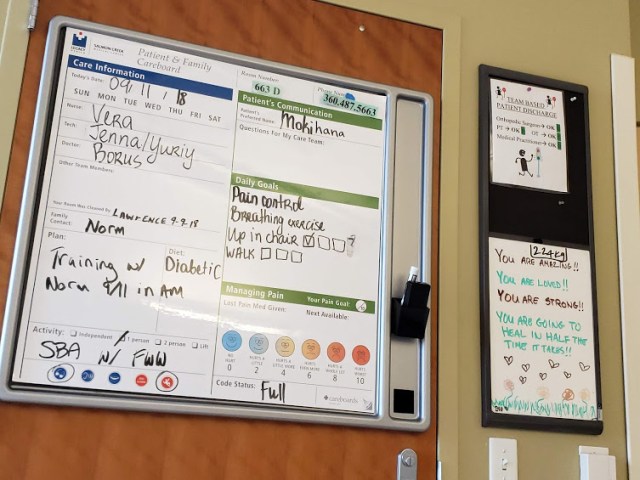 LEGACY
SALMON CREEK
Patient & Family
Careboard
Care Information
Today's Date: 09/11/18
SUN MON TUE WED THU FRI SAT
Nurse: Vera
Tech: Jenna/Yuriy
Doctor: Borus
Other Team Members:
Your Room Was Cleaned By: LAWRENCE 9-9-18
Family Contact: Norm
Plan:
Training w/
Norm 9/11 in AM
Diet: Diabetic
Activity: Independent 1 person 2 person Lift
SBA w/ FWW
Room Number
663 D
Phone Number
360.487.5663
Patient's Communication
Patient's Preferred Name: Mokihana
Questions For My Care Team:
Daily Goals
Pain control
Breathing exercise
Up in chair
WALK
Managing Pain
Your Pain Goal:
Last Pain Med Given:
Next Available:
NO HURT HURTS A LITTLE HURTS A LITTLE MORE HURTS EVEN MORE HURTS A WHOLE LOT HURTS WORST
0 2 4 6 8 10
Code Status: Full
careboards
TEAM BASED
PATIENT DISCHARGE
Orthopedic Surgeon → OK
PT → OK OT → OK
Medical Practitioner → OK
124Kg
YOU ARE AMAZING!!
YOU ARE LOVED!!
YOU ARE STRONG!!
YOU ARE GOING TO
HEAL IN HALF THE
TIME IT TAKES!!